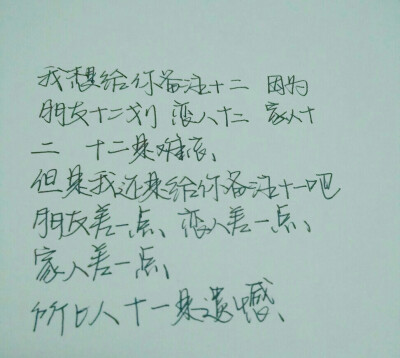 我想给你备注十二 因为
朋友十二划 恋人十二 家人十
二 十二是难忘、
但是我还是给你备注十一吧
朋友差一点、恋人差一点、
家人差一点、
所以人十一是遗憾、